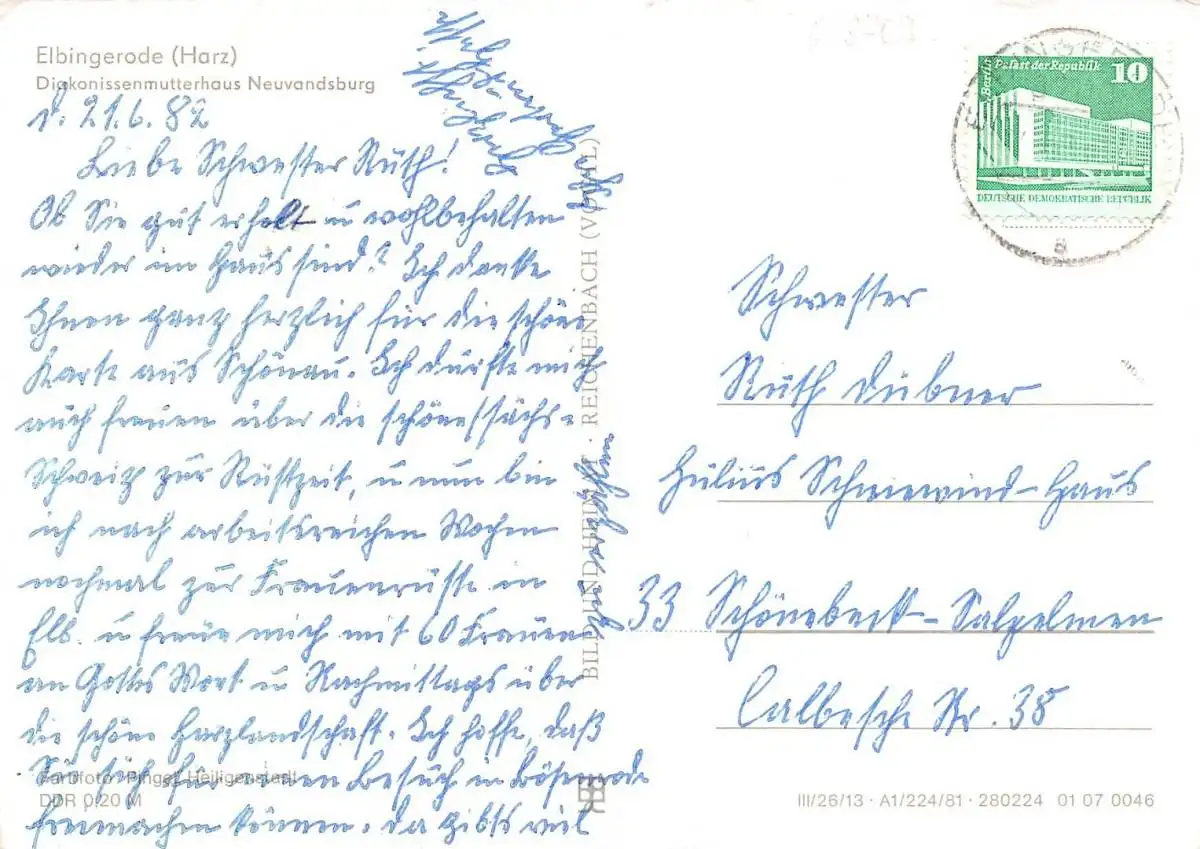 Elbingerode (Harz)
Diakonissenmutterhaus Neuvandsburg
d. 21.6.82
Liebe Schwester Ruth!
Ob Sie gut erholt u wohlbehalten
wieder im Haus sind? Ich danke
Ihnen ganz herzlich für die schöne
Karte aus Schönau. Ich durfte mich
auch freuen über die schöne sächs-
Schweiz zur Rüstzeit, u nun bin
ich nach arbeitsreichen Wochen
nochmal zur Frauenrüste in
Elb. u freue mich mit 60 Frauen
an Gottes Wort u Nachmittags über
die schöne Harzlandschaft. Ich hoffe, daß
Sie sich für einen Besuch in Bösenrode
freimachen können. Da gibts viel
zu
Farbfoto: Pinget Heiligenstadt
DDR 0,20 M
BILD UND HEIMAT · REICHENBACH (VOGTL.)
Berlin Palast der Republik 10
DEUTSCHE DEMOKRATISCHE REPUBLIK
a
Schwester
Ruth Dübner
Julius Schniewind-Haus
33 Schönebeck-Salzelmen
Calbesche Str. 38
III/26/13 · A1/224/81 · 280224 01 07 0046